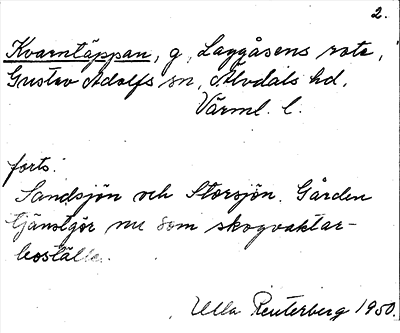 2.
Kvarntäppan, g, Laggåsens rote,
Gustav Adolfs sn, Älvdals hd,
Värml. l.
forts.
Sandsjön och Storsjön. Gården
tjänstgör nu som skogvaktar-
boställe.
Ulla Reuterberg 1950.